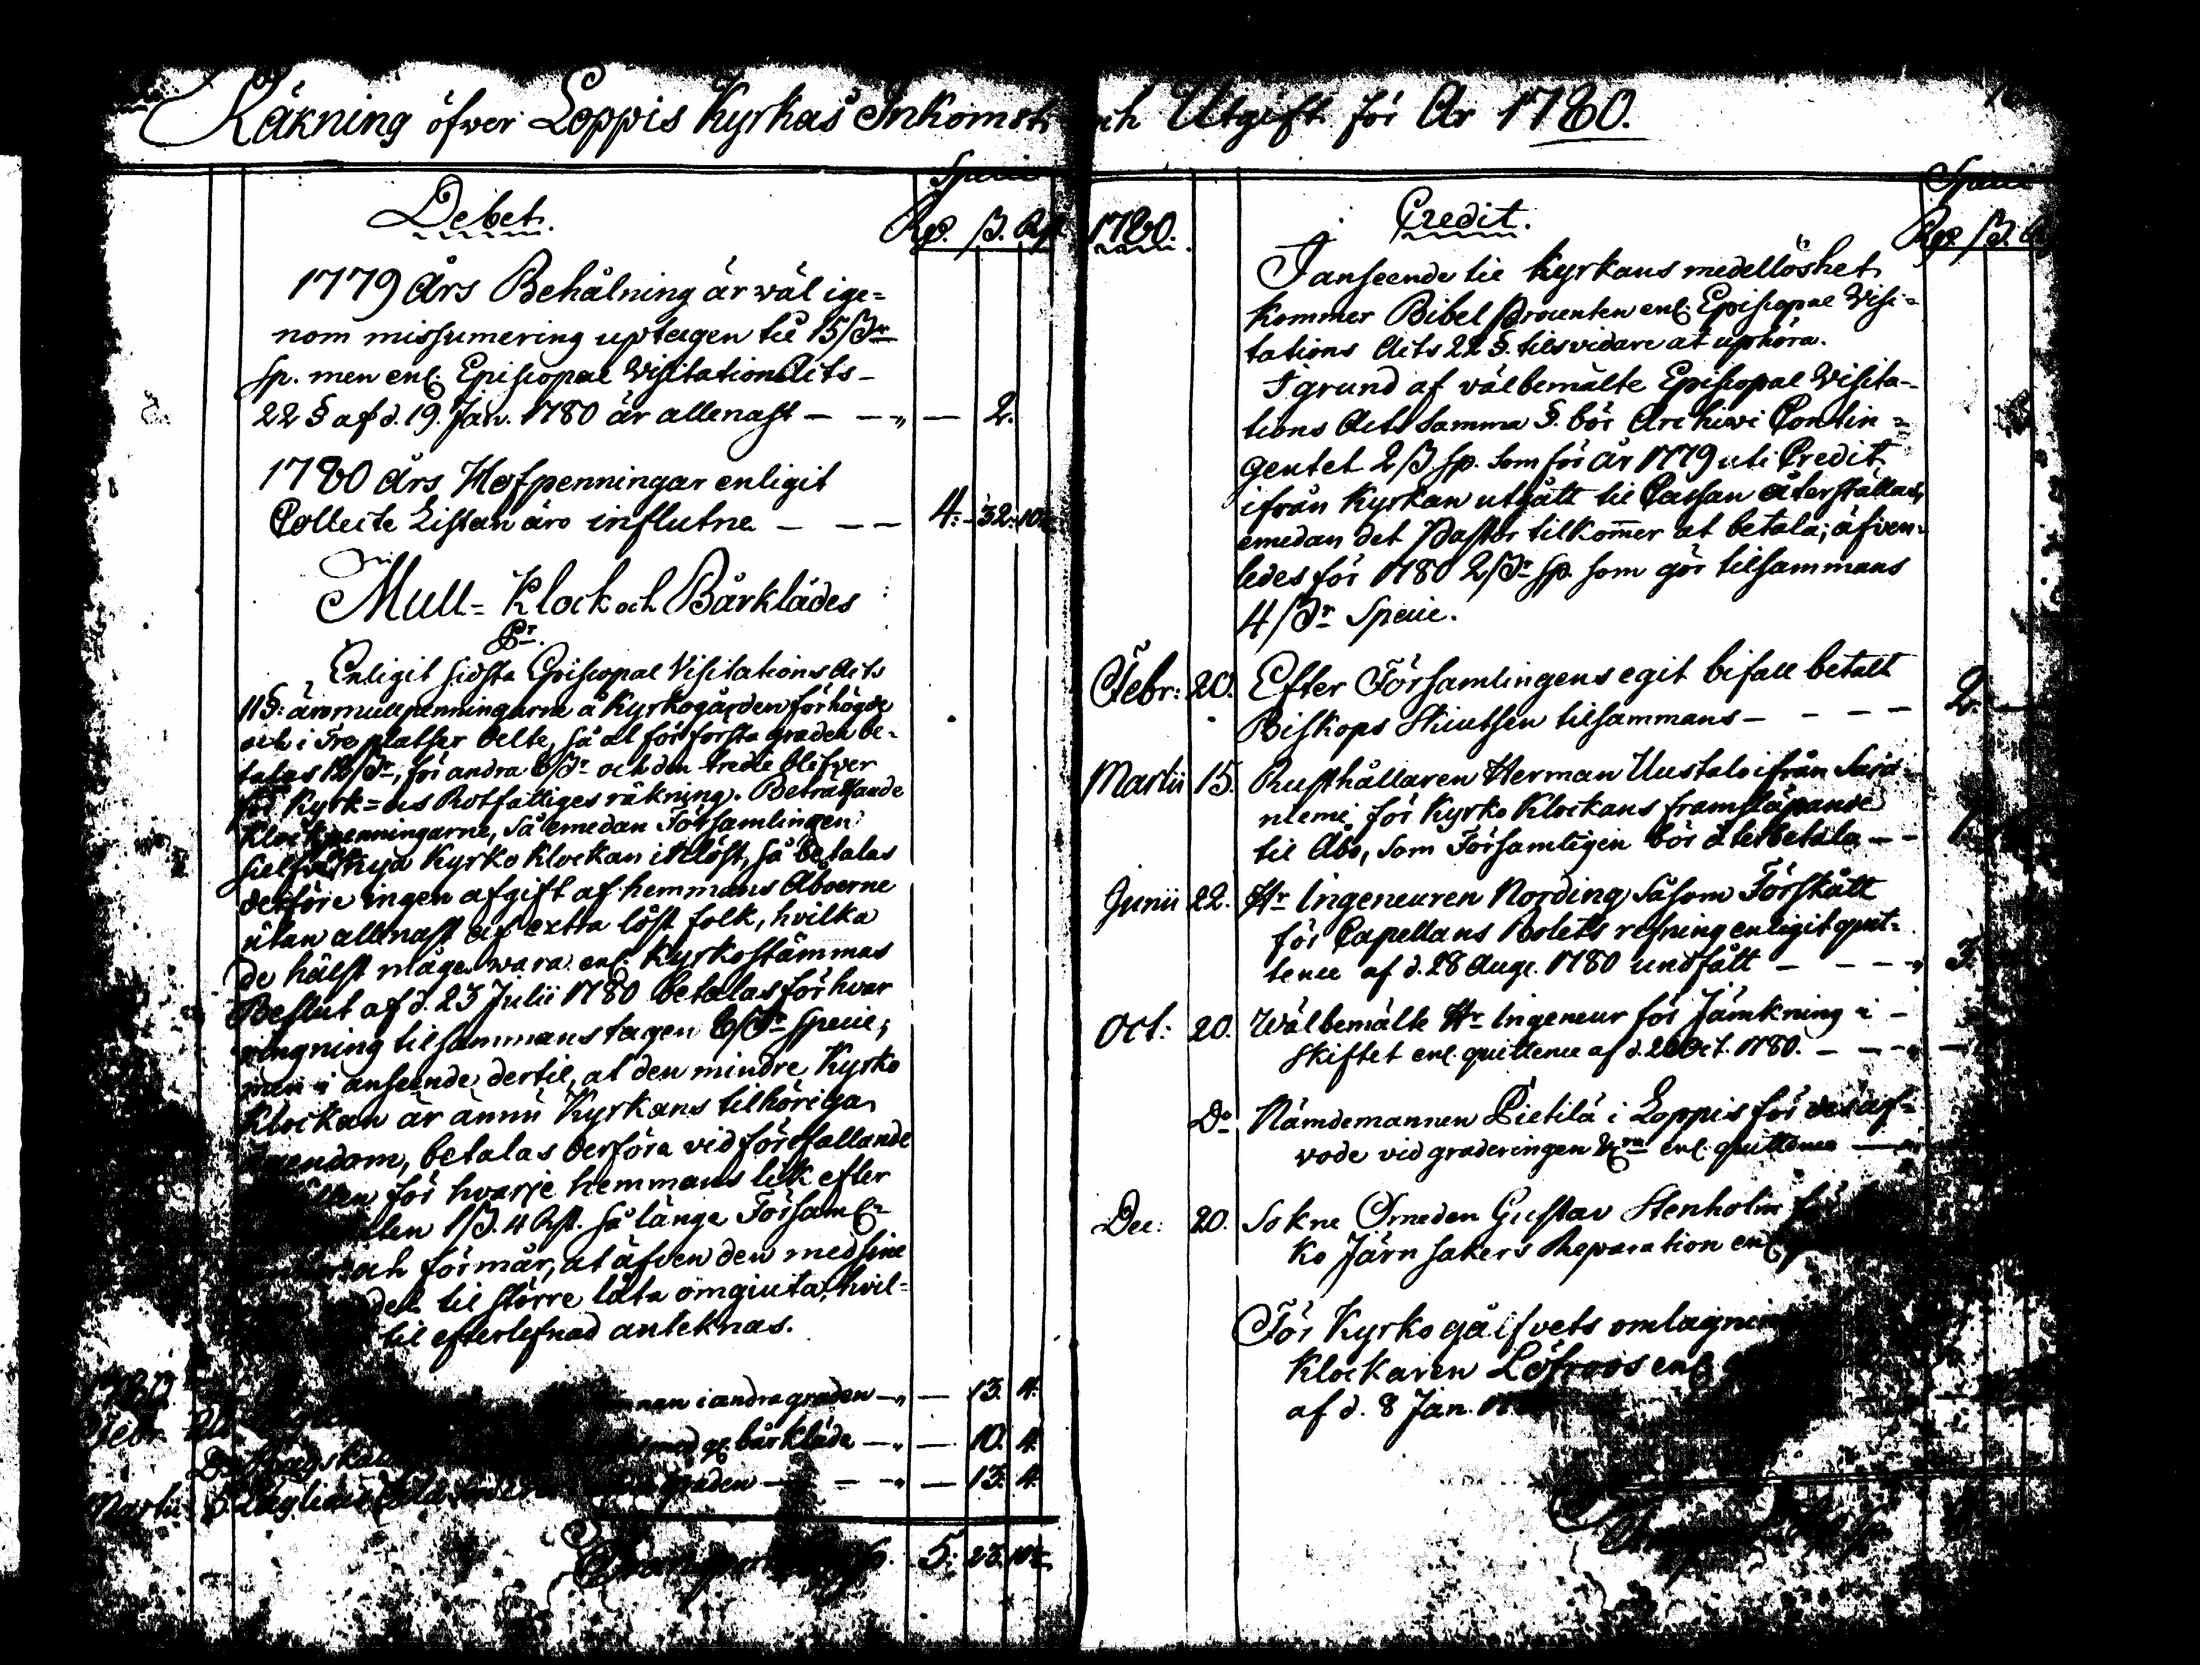 Räkning öfwer Loppis Kyrkas Inkomst och Utgift för År 1780.
Specie
Debet.
Rd. ß. Rst.
1779 Års Behålning är wäl ige=
nom missumering uptagen til 15 ßr
sp. men enl. Episcopal Visitations Acts
22 § af d. 19. Jan. 1780 är allenast — — „ — 2.
1780 Års Hofpenningar enligit
Collecte Listan äro influtne — — — 4. 32. 10
Mull= Klock och Bårklädes
Pr.
Enligit sidsta Episcopal Visitations Acts
11 §: äro mullpenningarne å Kyrkogården förhögde
och i tre platser delte, så at för första graden be-
talas 12 ßr, för andra 8 ßr och den tredie blifwer
för Kyrk=ens Rotfattiges räkning. Beträffande
Klockpenningarne, så emedan Församlingen
sielf nya Kyrko Klockan inlöst, så betalas
derföre ingen afgift af hemmans Åboerne
utan allenast af extra löst folk, hvilka
de hälst måge wara enl. Kyrkostämmas
Beslut af d. 23 Julii 1780 betalas för hvar
ringning tilsammans tagen 8 ßr Specie;
men i anseende dertil, at den mindre Kyrko
Klockan är ännu Kyrkans tilhöriga
Egendom, betalas derföre vid förefallande
för hvarje hemmans lik efter
1 ß. 4 Rst. så länge Församl:
och förmår, at äfven den med sine
del til större låta omgiuta, hvil=
til efterlefnad anteknas.
Febr. i andra graden — „ — 13. 4.
Do med gl. bårkläde — „ — 10. 4.
Martii graden — — — „ — 13. 4.
5. 23.
Specie
1780. Credit. Rd. ß.
I anseende til Kyrkans medellöshet
kommer Bibel Procenten enl. Episcopal Visi=
tations Acts 22 §. tilsvidare at uphöra.
I grund af välbemälte Episcopal Visita-
tions Acts samma §. bör Archivi Contin=
gentet 2 ß sp. som för år 1779 uti Credit
ifrån Kyrkan utgått til Cassan återställas,
emedan det Pastor tilkom̅er at betala; äfven-
ledes för 1780 2 ßr sp. som gör tilsammans
4 ßr Specie.
Febr: 20. Efter Församlingens egit bifall betalt
Biskops Skiutsen tilsammans — — — — 2.
Martii 15. Rusthållaren Herman Uustalo ifrån
niemi för Kyrko Klockans framsläpande
til Åbo, som Församligen bör återbetala — —
Junii 22. Hr Ingeneuren Nording såsom Förskått
för Capellans Bolets refning enligit quit-
tence af d. 28 Aug. 1780 undfått — — — „ 3.
Oct: 20. Wälbemälte Hr Ingeneur för Jämkning i —
skiftet enl. quittence af d. 20 Oct. 1780. — — — „ —
Do Nämdemannen Pietilä i Loppis för des arf=
vode vid graderingen enl. quittence —
Dec: 20. Sokne Smeden Gustav Stenholm för
ko Järn sakers Reparation enl.
För Kyrko gålfvets omlagning
Klockaren Löfroos enl.
af d. 8 Jan.